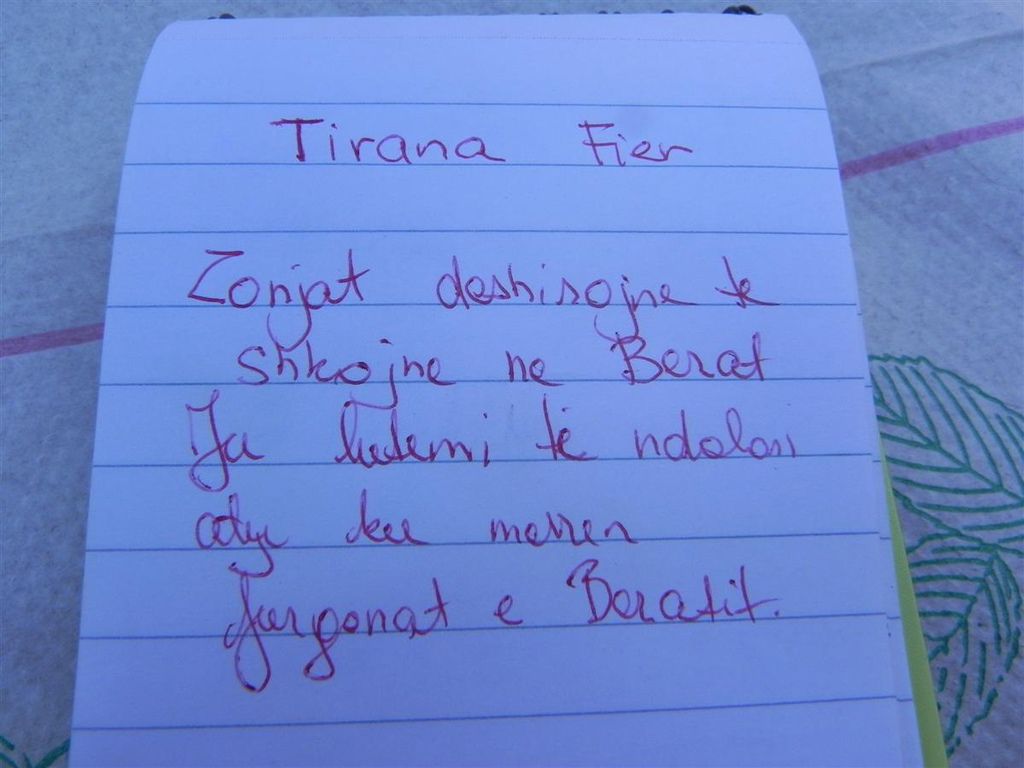 Tirana Fier
Zonjat deshirojne te
shkojne ne Berat
Ju lutemi te ndaloni
atje ku merren
furgonat e Beratit.